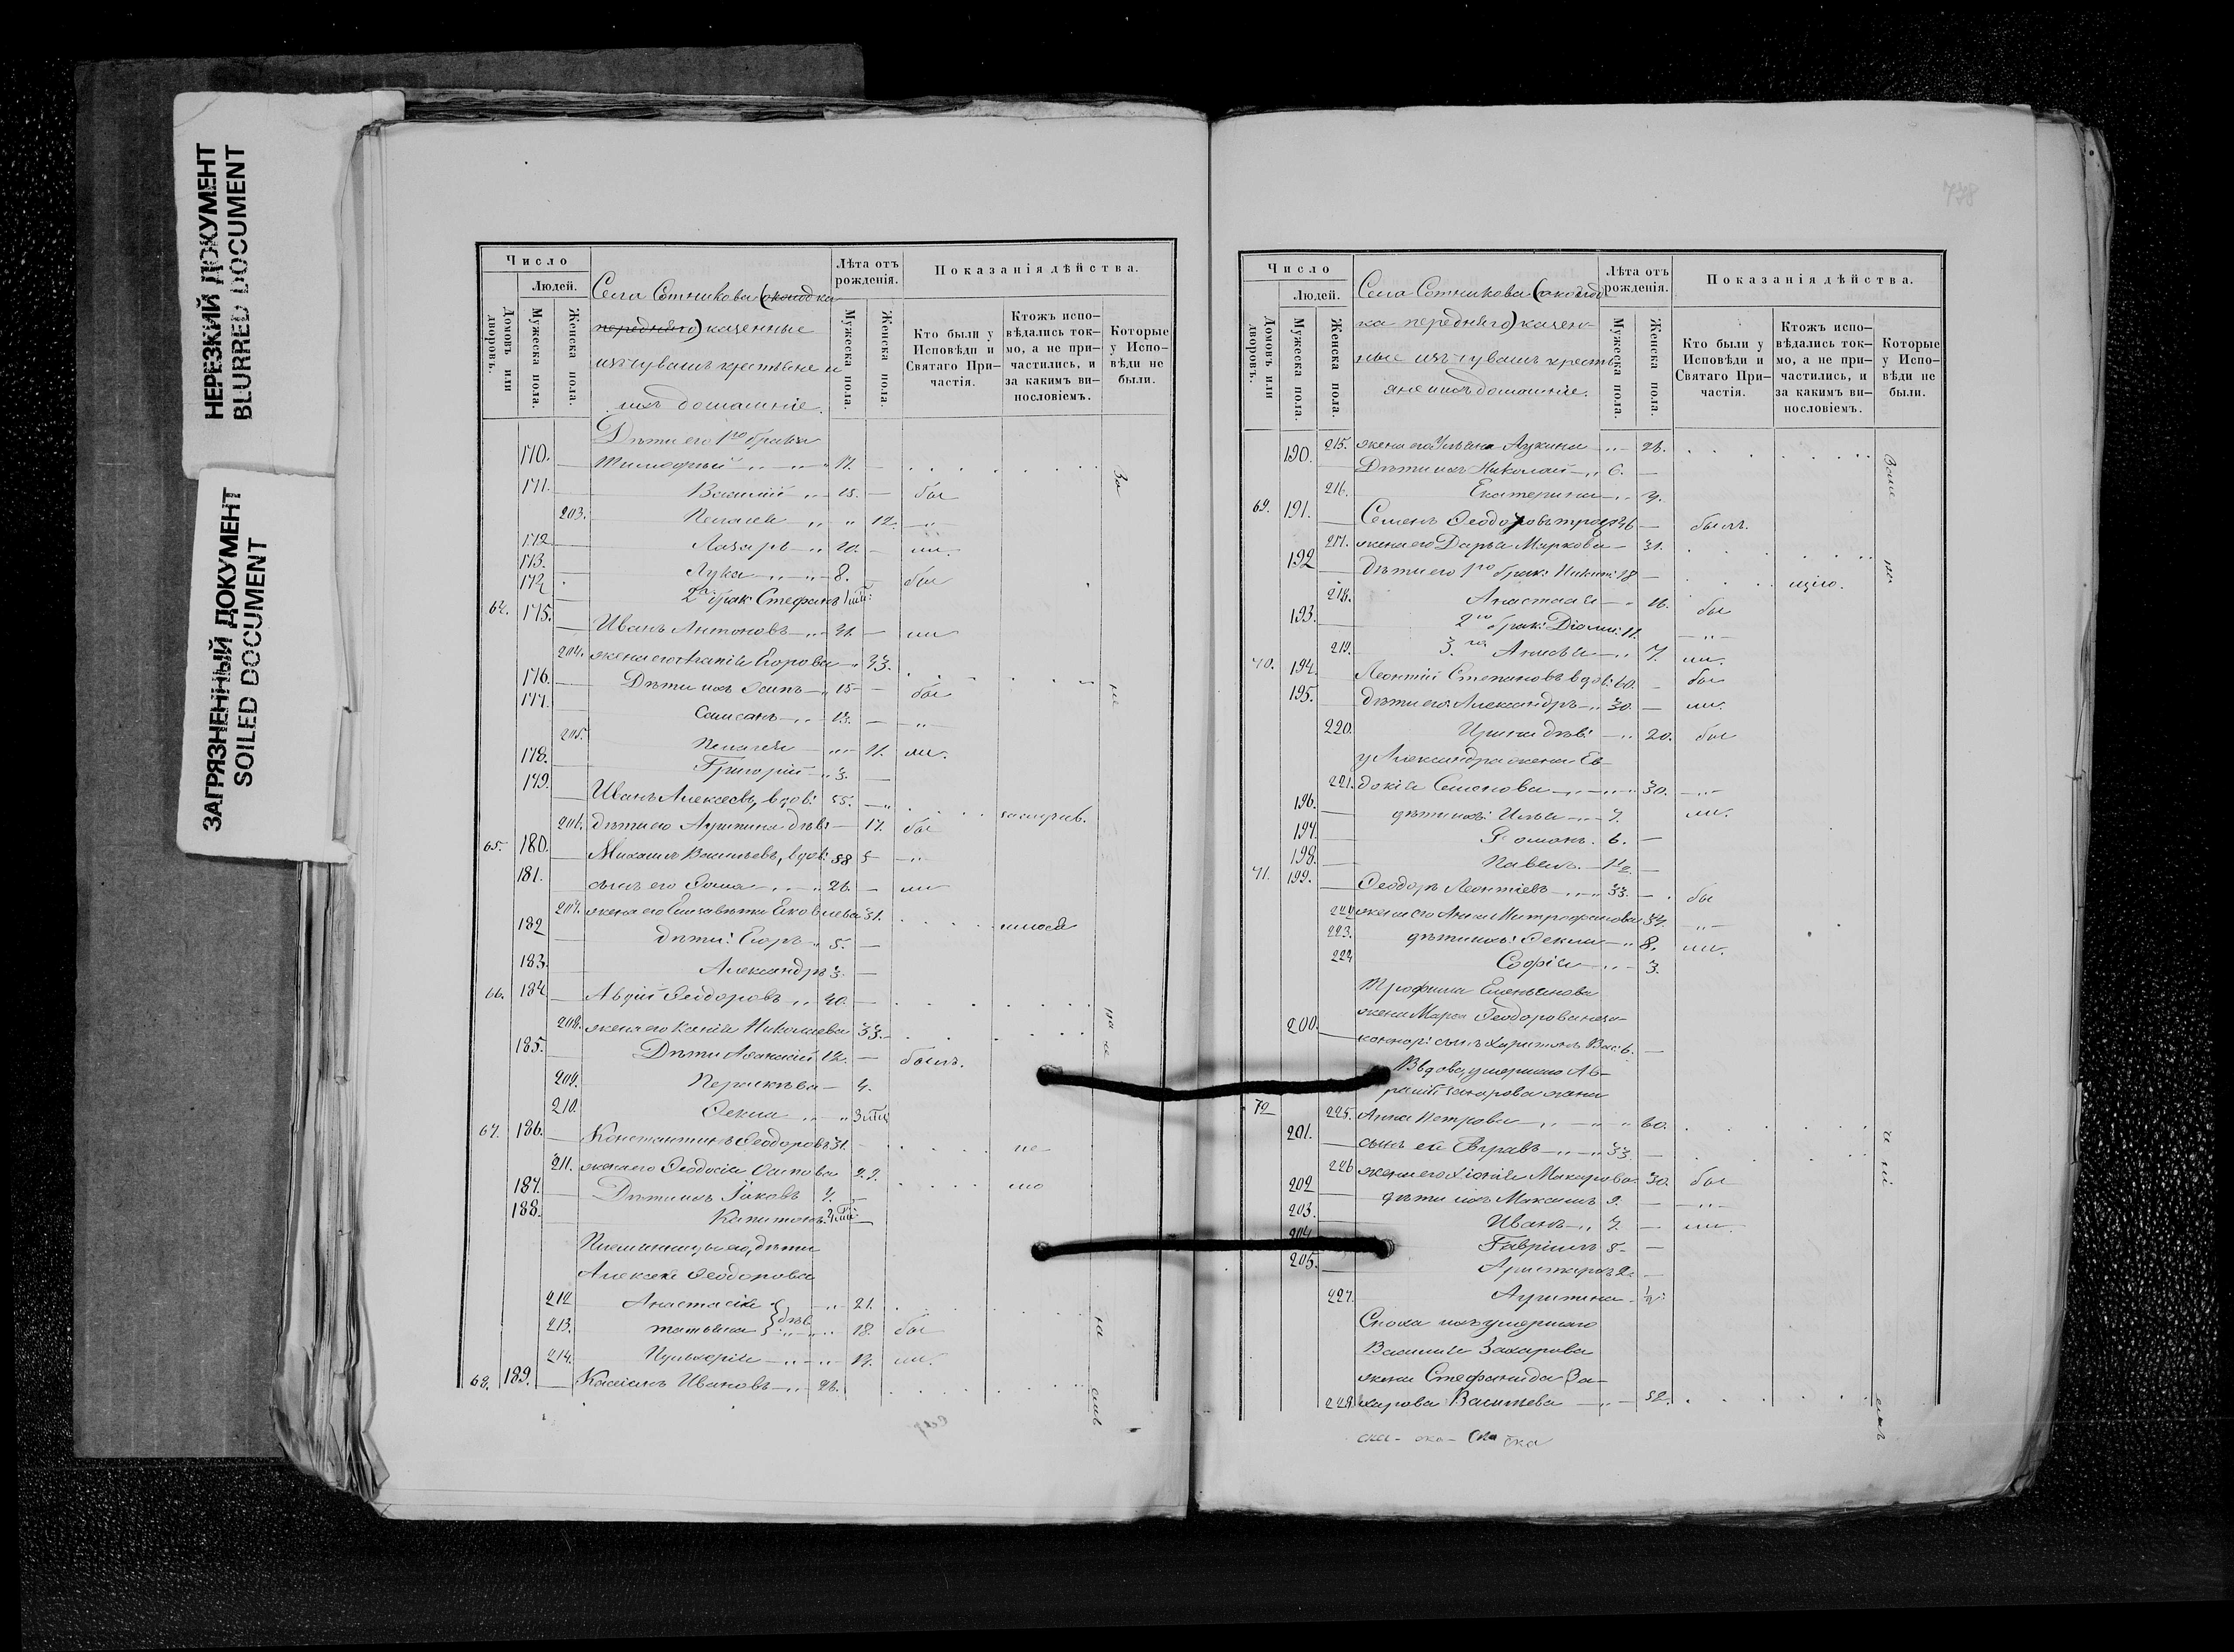 НЕРЕЗКИЙ ДОКУМЕНТ
BLURRED DOCUMENT
ЗАГРЯЗНЕННЫЙ ДОКУМЕНТ
SOILED DOCUMENT
Число
Людей.
Домовъ или дворовъ.
Мужеска пола.
Женска пола.
Села Сотникова (околодка
передняго) казенные
изъ чувашъ крестьяне и
ихъ домашніе.
Лѣта отъ рожденія.
Мужеска пола.
Женска пола.
Показанія дѣйства.
Кто были у Исповѣди и Святаго Причастія.
Ктожъ исповѣдались токмо, а не причастились, и за какимъ винословіемъ.
Которые у Исповѣди не были.
Дѣти его 1го брака
170. Тимофей 17.
171. Василій 15. бы
203. Пелагея 12.
172. Лазарь 10. ли.
173. Лука 8. бы
174. 2го брак: Стефанъ
64. 175. Иванъ Антоновъ 41. ли
204. жена его Агапія Егорова 43.
176. Дѣти ихъ Осипъ 15 бы
177. Самсонъ 13.
205. Пелагея 11. ли.
178. Григорій 3.
179. Иванъ Алексеевъ, вдов: 55.
206. дѣти его Агрипина дѣв: 17. бы
65. 180. Михаилъ Васильевъ, вдов: 58
181. сынъ его Фома 26. ли
207. жена его Елизавета Яковлева 31.
182 дѣти: Егоръ 5.
183. Александръ 3.
66. 184 Авдій Ѳеодоровъ 40.
208. жена его Ксенія Николаева 33.
185. Дѣти Аѳанасій 12. былъ.
209. Параскева 4.
210. Ѳекла
67. 186. Константинъ Ѳеодоровъ 31. не
211. жена его Ѳеодосія Осипова 29.
187. Дѣти ихъ Іаковъ 4.
188. Капитонъ
Племянницы его, дѣти
Алексея Ѳеодорова
212 Анастасія 21.
213. Татьяна дѣв 18. бы
214. Пульхерія 14. ли.
68. 189. Касіанъ Ивановъ 28.
778
Число
Людей.
Домовъ или дворовъ.
Мужеска пола.
Женска пола.
Села Сотникова (околод
ка передняго) казен-
ные изъ чувашъ кресть
яне и ихъ домашніе.
Лѣта отъ рожденія.
Мужеска пола.
Женска пола.
Показанія дѣйства.
Кто были у Исповѣди и Святаго Причастія.
Ктожъ исповѣдались токмо, а не причастились, и за какимъ винословіемъ.
Которые у Исповѣди не были.
215. жена его Ульяна Лукина 28.
190. Дѣти ихъ Николай 6.
216. Екатерина 4.
69. 191. Семенъ Ѳеодоровъ 46 былъ.
217. жена его Дарья Маркова 31.
192 дѣти его 1го брак: 18
218. Анастасія 16. бы
193. 2го брак: 11.
219. 3го Анисья 7. ли.
70. 194. Леонтій Степановъ вдов: 60. бы
195. дѣти его: Александръ 30. ли.
220. Ирина дѣв: 20. бы
у Александра жена Ев-
221. докія Семенова 30.
196. дѣти ихъ: Илья 7. ли.
197. Романъ. 6.
198. Павелъ. 1½.
71. 199. Ѳеодоръ Леонтіевъ 33. бы
222 жена его Анна Митрофанова 34.
223. дѣти ихъ: Ѳекла 8. ли.
224 Софія 3.
Трофима Емельянова
жена Марѳа Ѳеодорова неза-
200. коннор: сынъ Харитонъ Вас: 6.
Вдова, умершаго Ав-
рамія Захарова жена
72 225. Анна Петрова 60.
201. сынъ ея Евграфъ 33
226 жена его Хіонія Макарова 30. бы
202 дѣти ихъ Максимъ 9.
203. Иванъ 7. ли
204 Гавріилъ 5.
205. Аристархъ 2.
227. Агрипина ½
Сноха ихъ умершаго
Василія Захарова
жена Стефанида За-
228. харова Васильева 52.